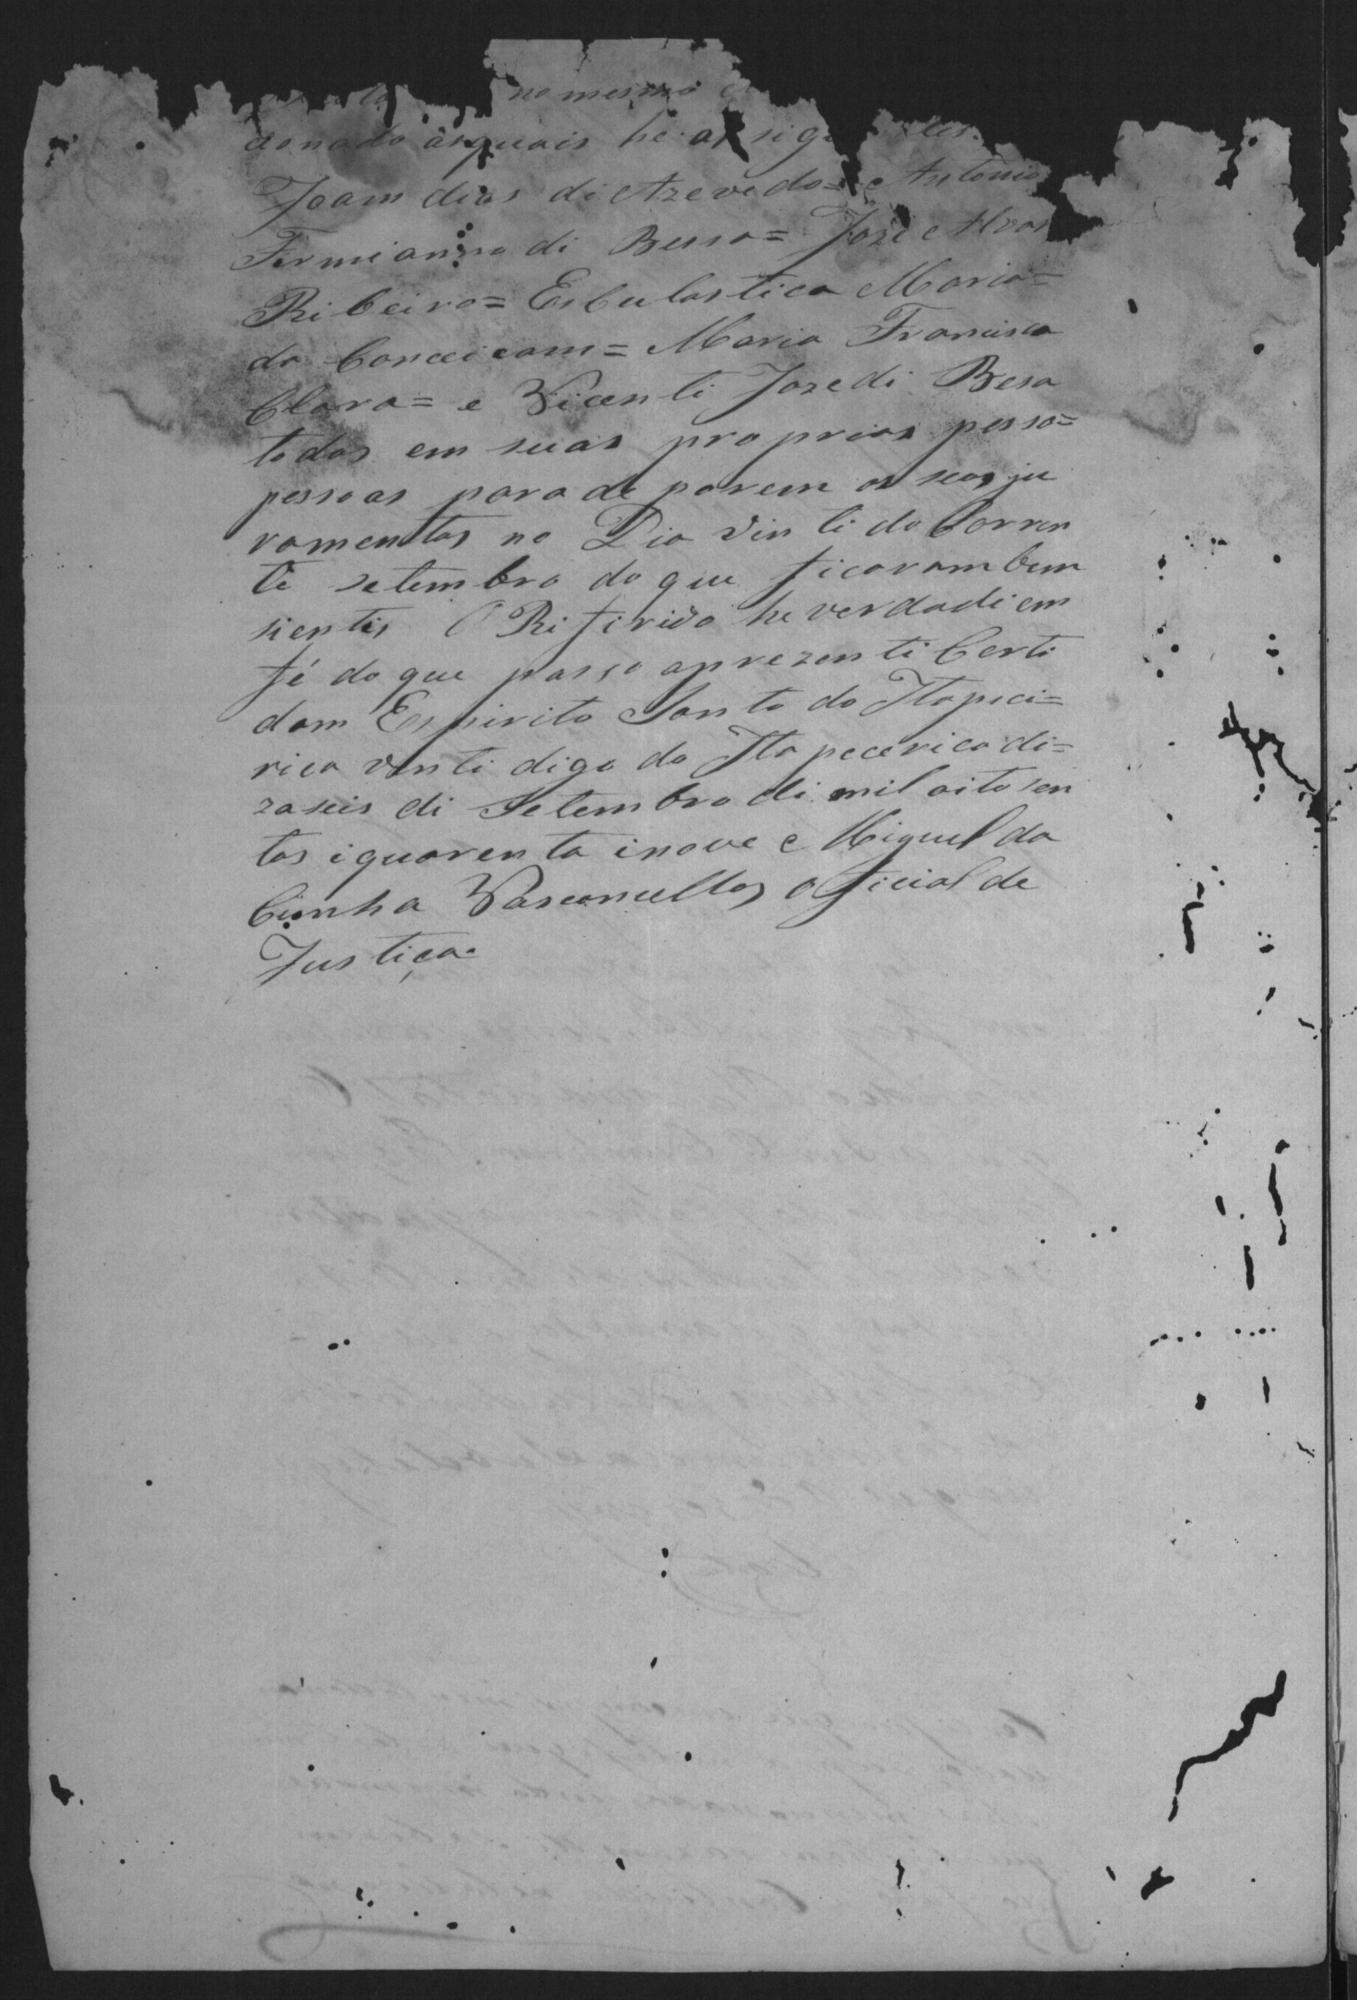 no mesmo
cionado asquais he as sig
Joam dias di Azevedo= Antonio
Fermianno di Bessa= Joze Alvas
Ribeiro= Esculastica Maria=
da Conceicam= Maria Francisca
Clara= e Vicenti Joze di Besa
todos em suas proprias pesso=
pessoas para de porem os seos ju
ramentos no Dia vinti do Corren
te setembro do que ficaram bem
sientis O Rifirido he verdadi em
fé do que passo aprezenti Certi
dam Espirito Santo da Itapici=
rica vinti digo da Itapecerica di=
zaseis di Setembro di mil oito sen
tos i quarenta i nove e Miguel da
Cunha Vasconcellos official de
Justiça